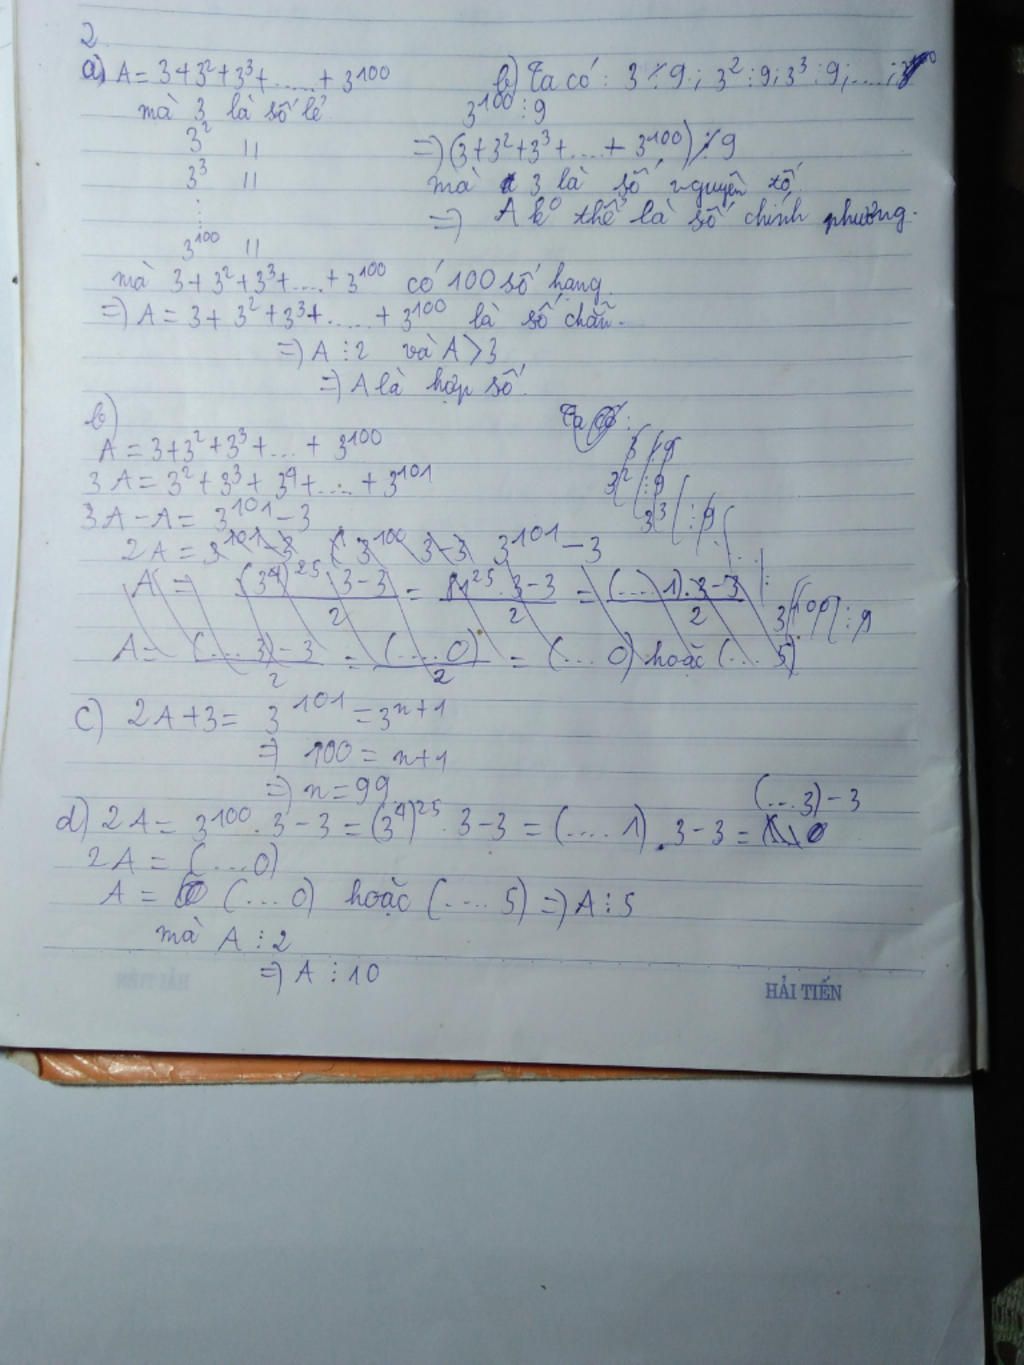 2.
a) A = 3+3²+3³+.....+3¹⁰⁰
mà 3 là số lẻ
3² //
3³ //
⋮
3¹⁰⁰ //
mà 3+3²+3³+....+3¹⁰⁰ có 100 số hạng.
=> A = 3+3²+3³+.....+3¹⁰⁰ là số chẵn.
=> A ⋮ 2 và A > 3
=> A là hợp số.
b) Ta có : 3 ⋮̸ 9 ; 3² ⋮ 9 ; 3³ ⋮ 9 ; ....;
3¹⁰⁰ ⋮ 9
=> (3+3²+3³+....+3¹⁰⁰) ⋮̸ 9
mà 3 là số nguyên tố.
=> A k° thể là số chính phương.
b)
A = 3+3²+3³+...+ 3¹⁰⁰
3A = 3²+3³+3⁴+....+3¹⁰¹
3A-A = 3¹⁰¹-3
2A = 3¹⁰¹-3 (3¹⁰⁰ 3-3) 3¹⁰¹-3
A = (3⁴)²⁵.3-3/2 = ²⁵.3-3/2 = (....1).3-3/2
A = (....3)-3/2 = (....0)/2 = (....0) hoặc (....5)
Ta có :
3 ⋮̸ 9
3² ⋮ 9
3³ ⋮ 9
⋮
3¹⁰⁰ ⋮ 9
c) 2A+3 = 3¹⁰¹ = 3ⁿ⁺¹
=> 100 = n+1
=> n = 99
d) 2A = 3¹⁰⁰.3-3 = (3⁴)²⁵.3-3 = (....1).3-3 = (...3)-3
2A = (...0)
A = (...0) hoặc (....5) => A ⋮ 5
mà A ⋮ 2
=> A ⋮ 10
HẢI TIẾN